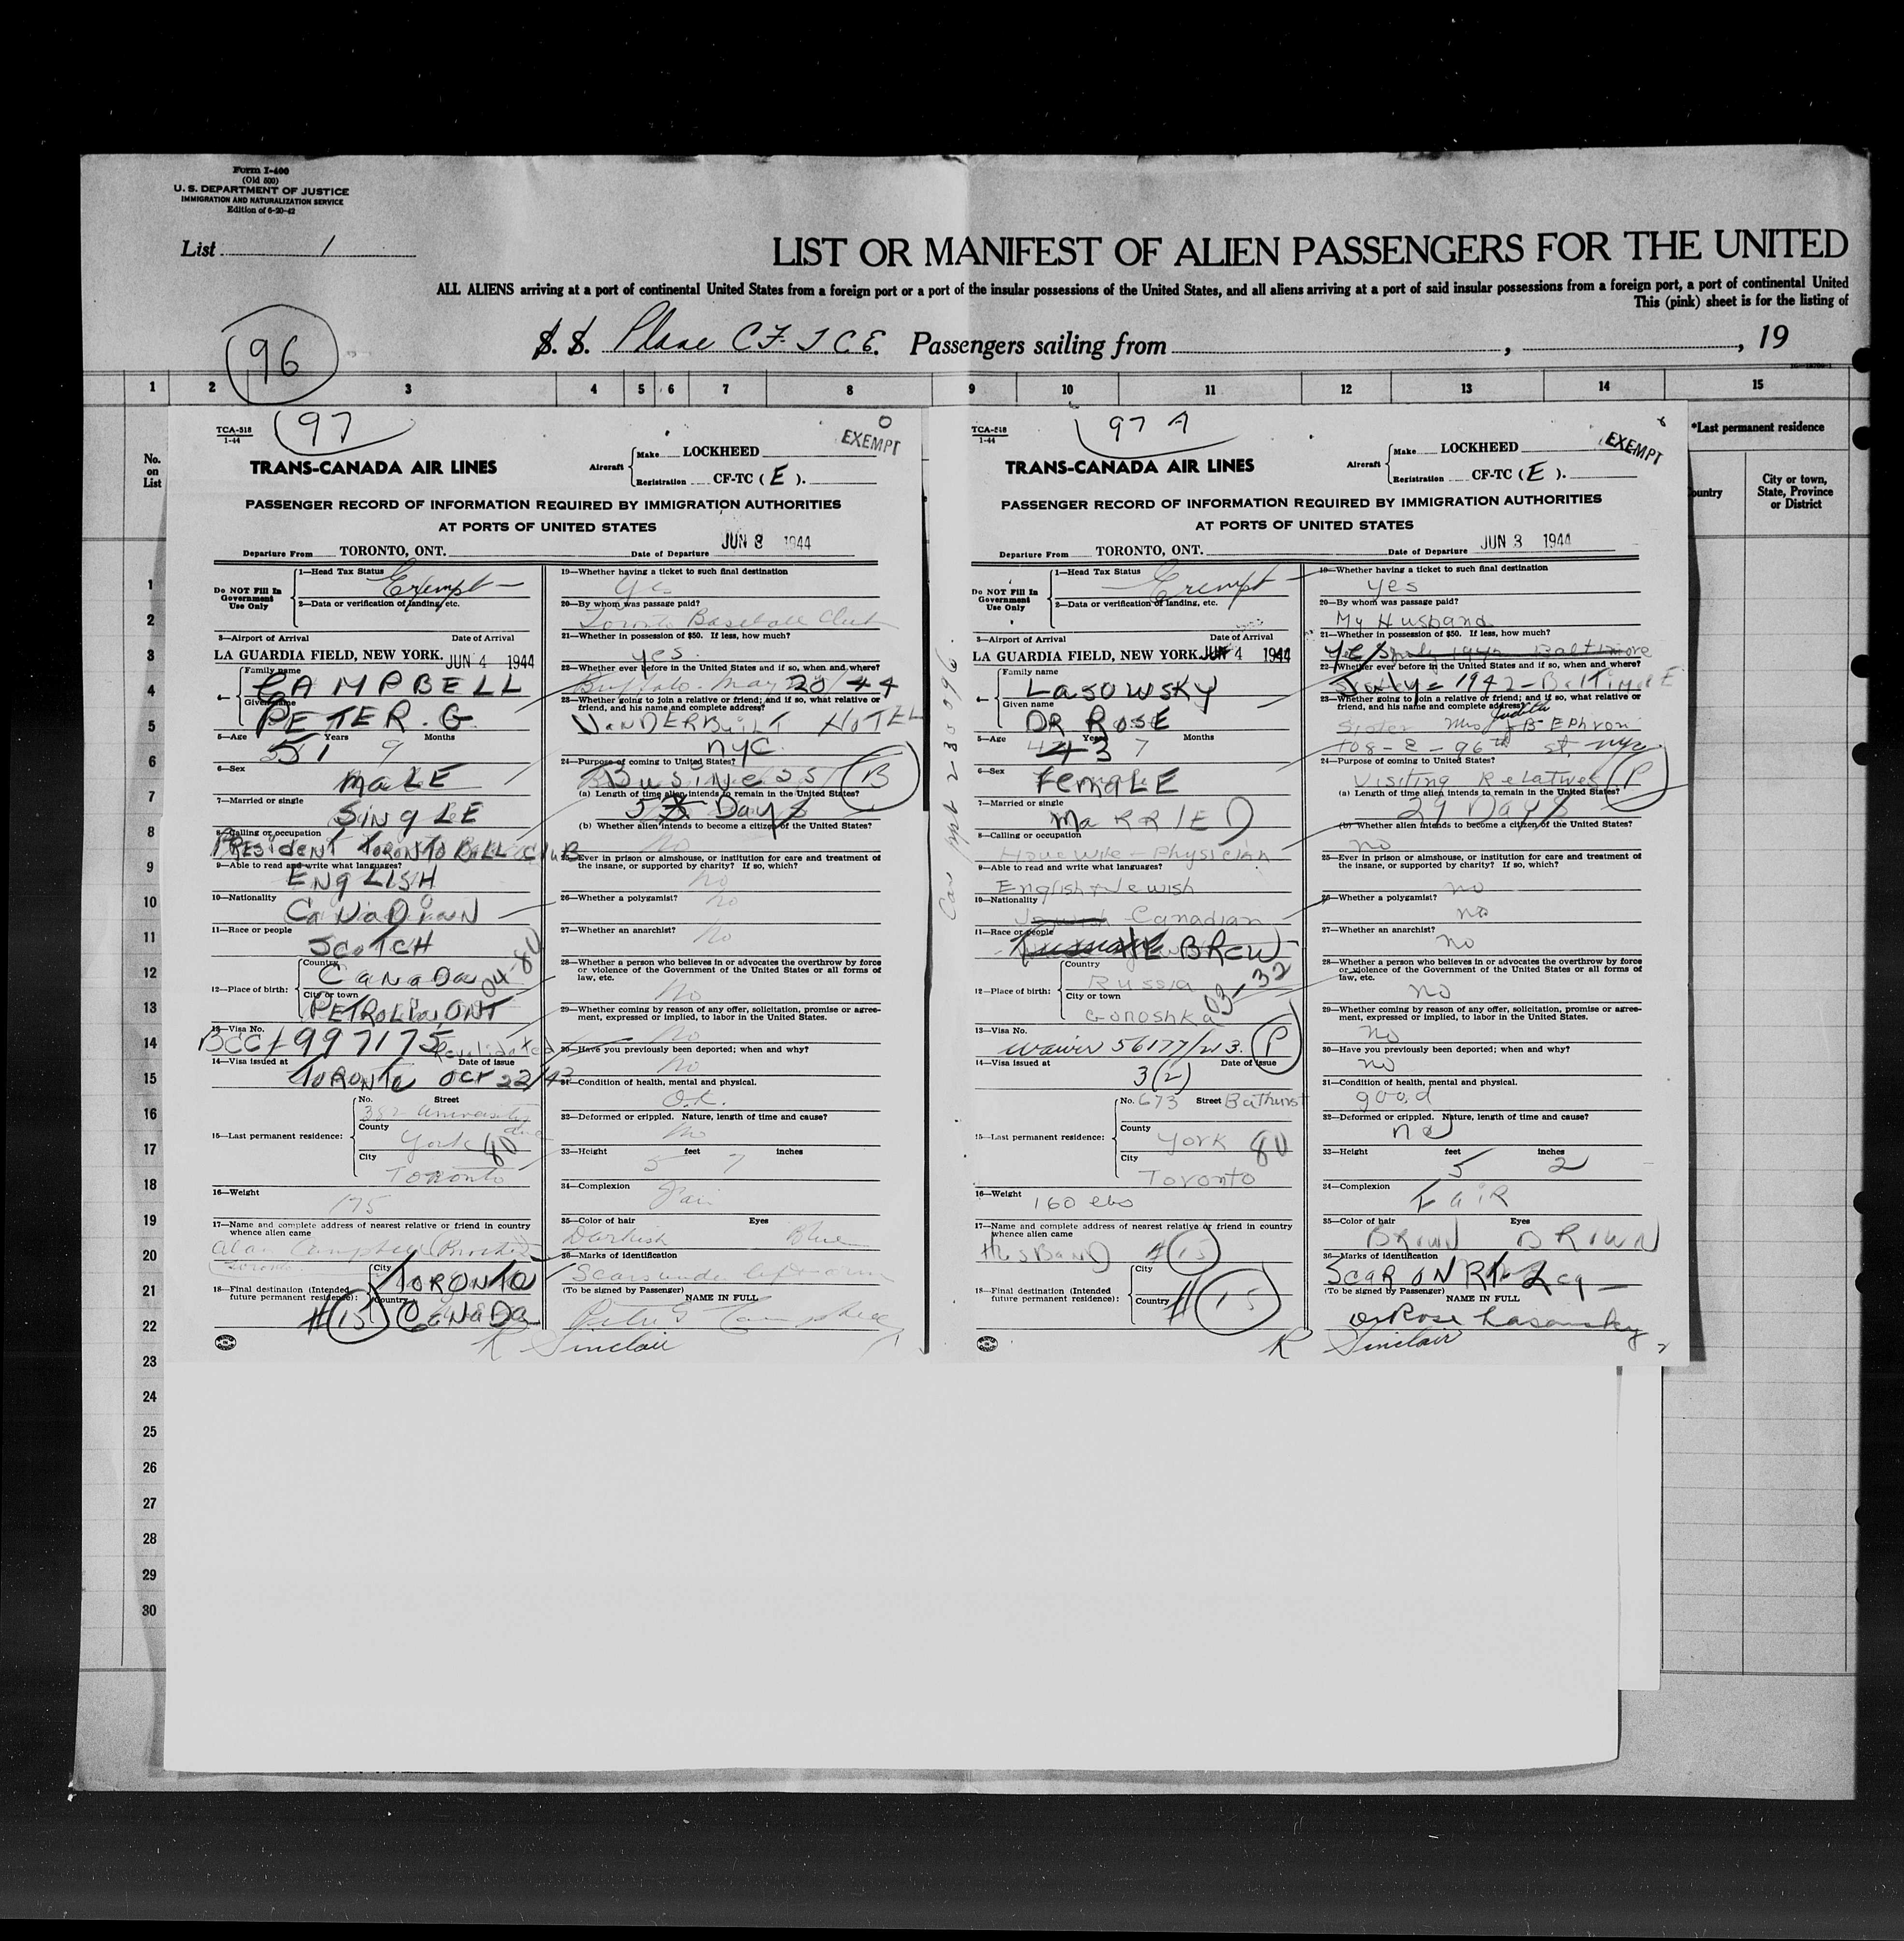 Form I-400
(Old 500)
U. S. DEPARTMENT OF JUSTICE
IMMIGRATION AND NATURALIZATION SERVICE
Edition of 6-20-42
List 1
LIST OR MANIFEST OF ALIEN PASSENGERS FOR THE UNITED
ALL ALIENS arriving at a port of continental United States from a foreign port or a port of the insular possessions of the United States, and all aliens arriving at a port of said insular possessions from a foreign port, a port of continental United
This (pink) sheet is for the listing of
96
S. S. Plane CF-TCE. Passengers sailing from , , 19
1 2 3 4 5 6 7 8 9 10 11 12 13 14 15
No.
on
List
*Last permanent residence
ountry
City or town,
State, Province
or District
1
2
3
4
5
6
7
8
9
10
11
12
13
14
15
16
17
18
19
20
21
22
23
24
25
26
27
28
29
30
TCA-518
1-44
97
EXEMPT
TRANS-CANADA AIR LINES
Aircraft
Make LOCKHEED
Registration CF-TC ( E ).
PASSENGER RECORD OF INFORMATION REQUIRED BY IMMIGRATION AUTHORITIES
AT PORTS OF UNITED STATES
Departure From TORONTO, ONT. Date of Departure JUN 3 1944
Do NOT Fill In
Government
Use Only
1—Head Tax Status
Exempt
2—Data or verification of landing, etc.
3—Airport of Arrival Date of Arrival
LA GUARDIA FIELD, NEW YORK. JUN 4 1944
4—
Family name
CAMPBELL
Given name
PETER. G.
5—Age Years Months
51 9
6—Sex
MaLE
7—Married or single
SINGLE
8—Calling or occupation
PRESIDENT TORONTO BALL CLUB
9—Able to read and write what languages?
ENGLISH
10—Nationality
CANADIAN
11—Race or people
SCOTCH
12—Place of birth:
Country
Canada
City or town
PETROLIA, ONT
04-80
13—Visa No.
BCC# 997175 Revalidated
14—Visa issued at Date of issue
TORONTO OCT 22/43
15—Last permanent residence:
No. Street
382 University
County
York 80
City
Toronto
16—Weight
175
17—Name and complete address of nearest relative or friend in country
whence alien came
Alan Campbell (Brother)
Toronto
18—Final destination (Intended
future permanent residence):
City
TORONTO
Country
CANADA
#15
19—Whether having a ticket to such final destination
Yes
20—By whom was passage paid?
Toronto Baseball Club
21—Whether in possession of $50. If less, how much?
yes.
22—Whether ever before in the United States and if so, when and where?
Buffalo - May 20/44
23—Whether going to join a relative or friend; and if so, what relative or
friend, and his name and complete address?
VaNDERBuiLT HOTEL
NYC
24—Purpose of coming to United States?
Business B
(a) Length of time alien intends to remain in the United States?
5 Days
(b) Whether alien intends to become a citizen of the United States?
No
25—Ever in prison or almshouse, or institution for care and treatment of
the insane, or supported by charity? If so, which?
No
26—Whether a polygamist?
No
27—Whether an anarchist?
No
28—Whether a person who believes in or advocates the overthrow by force
or violence of the Government of the United States or all forms of
law, etc.
No
29—Whether coming by reason of any offer, solicitation, promise or agree-
ment, expressed or implied, to labor in the United States.
No
30—Have you previously been deported; when and why?
No
31—Condition of health, mental and physical.
O.K.
32—Deformed or crippled. Nature, length of time and cause?
No
33—Height feet inches
5 7
34—Complexion
Fair
35—Color of hair Eyes
Darkish Blue
36—Marks of identification
Scars under left arm
(To be signed by Passenger)
NAME IN FULL
Peter G Campbell
R Sinclair
TCA-518
1-44
97 A
EXEMPT
TRANS-CANADA AIR LINES
Aircraft
Make LOCKHEED
Registration CF-TC ( E ).
PASSENGER RECORD OF INFORMATION REQUIRED BY IMMIGRATION AUTHORITIES
AT PORTS OF UNITED STATES
Departure From TORONTO, ONT. Date of Departure JUN 3 1944
Do NOT Fill In
Government
Use Only
1—Head Tax Status
Exempt
2—Data or verification of landing, etc.
3—Airport of Arrival Date of Arrival
LA GUARDIA FIELD, NEW YORK. JUN 4 1944
4—
Family name
Lasowsky
Given name
DR ROSE
5—Age Years Months
43 7
6—Sex
FemaLE
7—Married or single
MaRRIED
8—Calling or occupation
Housewife - Physician
9—Able to read and write what languages?
English + Jewish
10—Nationality
Jewish Canadian
11—Race or people
HEBREW
12—Place of birth:
Country
Russia
City or town
Goroshka
03-32
13—Visa No.
Waiver 56177/213. P
14—Visa issued at Date of issue
3(2)
15—Last permanent residence:
No. 673 Street Bathurst
County
York 80
City
Toronto
16—Weight
160 lbs
17—Name and complete address of nearest relative or friend in country
whence alien came
HusBanD #15
18—Final destination (Intended
future permanent residence):
City
Country
#15
19—Whether having a ticket to such final destination
yes
20—By whom was passage paid?
My Husband
21—Whether in possession of $50. If less, how much?
yes July 1942 Baltimore
22—Whether ever before in the United States and if so, when and where?
July - 1942 - BaLTimoRE
23—Whether going to join a relative or friend; and if so, what relative or
friend, and his name and complete address?
Sister Mrs Judith B Ephron
108-E-96th st, nyc.
24—Purpose of coming to United States?
Visiting Relatives P
(a) Length of time alien intends to remain in the United States?
29 Days
(b) Whether alien intends to become a citizen of the United States?
no
25—Ever in prison or almshouse, or institution for care and treatment of
the insane, or supported by charity? If so, which?
no
26—Whether a polygamist?
no
27—Whether an anarchist?
no
28—Whether a person who believes in or advocates the overthrow by force
or violence of the Government of the United States or all forms of
law, etc.
no
29—Whether coming by reason of any offer, solicitation, promise or agree-
ment, expressed or implied, to labor in the United States.
no
30—Have you previously been deported; when and why?
no
31—Condition of health, mental and physical.
good
32—Deformed or crippled. Nature, length of time and cause?
no
33—Height feet inches
5 2
34—Complexion
FaiR
35—Color of hair Eyes
BROWN BROWN
36—Marks of identification
SCAR ON RT. Leg
(To be signed by Passenger)
NAME IN FULL
Dr Rose Lasowsky
R Sinclair